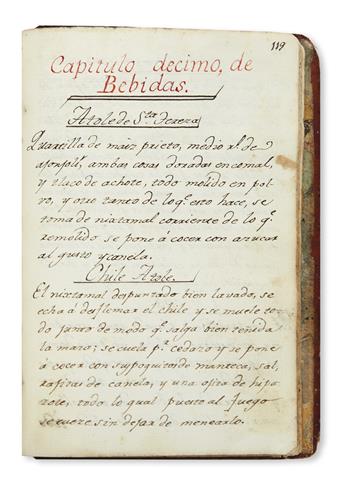 119
Capitulo decimo, de
Bebidas.
Atole de Sta. Tereza
Quartilla de maiz prieto, medio rl. de
ajonjolí, ambas cosas doradas en comal,
y tlaco de achote, todo molido en pol-
vo, y otro tanto de lo qe. esto hace, se
toma de nixtamal corriente de lo qe.
remolido se pone a cocer con azucar
al gusto y canela.
Chile Atole.
El nixtamal despuntado bien lavado, se
echa a desflemar el chile y se muele to-
do junto de modo qe. salga bien teñida
la maza; se cuela pr. cedazo y se pone
á cocer con su poquito de manteca, sal,
rajitas de canela, y una ojita de hipa-
zote, todo lo qual puesto al fuego
se cuese sin dejar de menearlo.